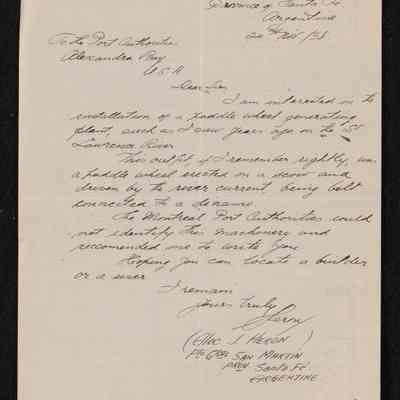 Province of Santa Fe
Argentine
To the Port Authorities
Alexandra Bay
U.S.A
Dear Sir
I am interested in the
installation of a paddle wheel generating
plant, such as I saw years ago on the St
Lawrence River
This outfit, if I remember rightly, was
a paddle wheel erected on a scow and
driven by the river current being belt
connected to a dynamo.
The Montreal Port Authorities could
not identify this machinery and
reccomended me to write you
Hoping you can locate a builder
or a user
I remain
Yours truly
(Alec J HERON)
Pto Gral SAN MARTIN
PROV SANTA FÉ
ARGENTINE